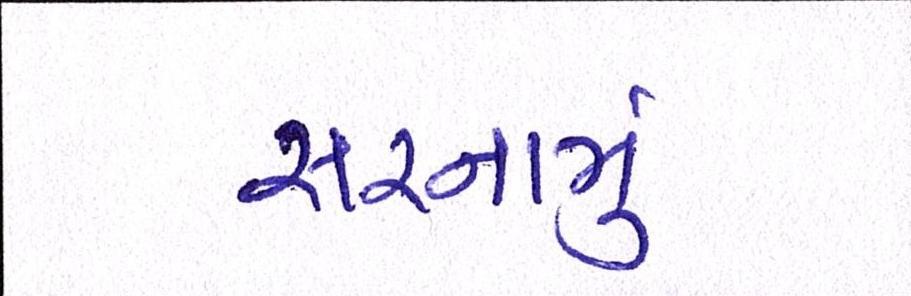 સરનામું